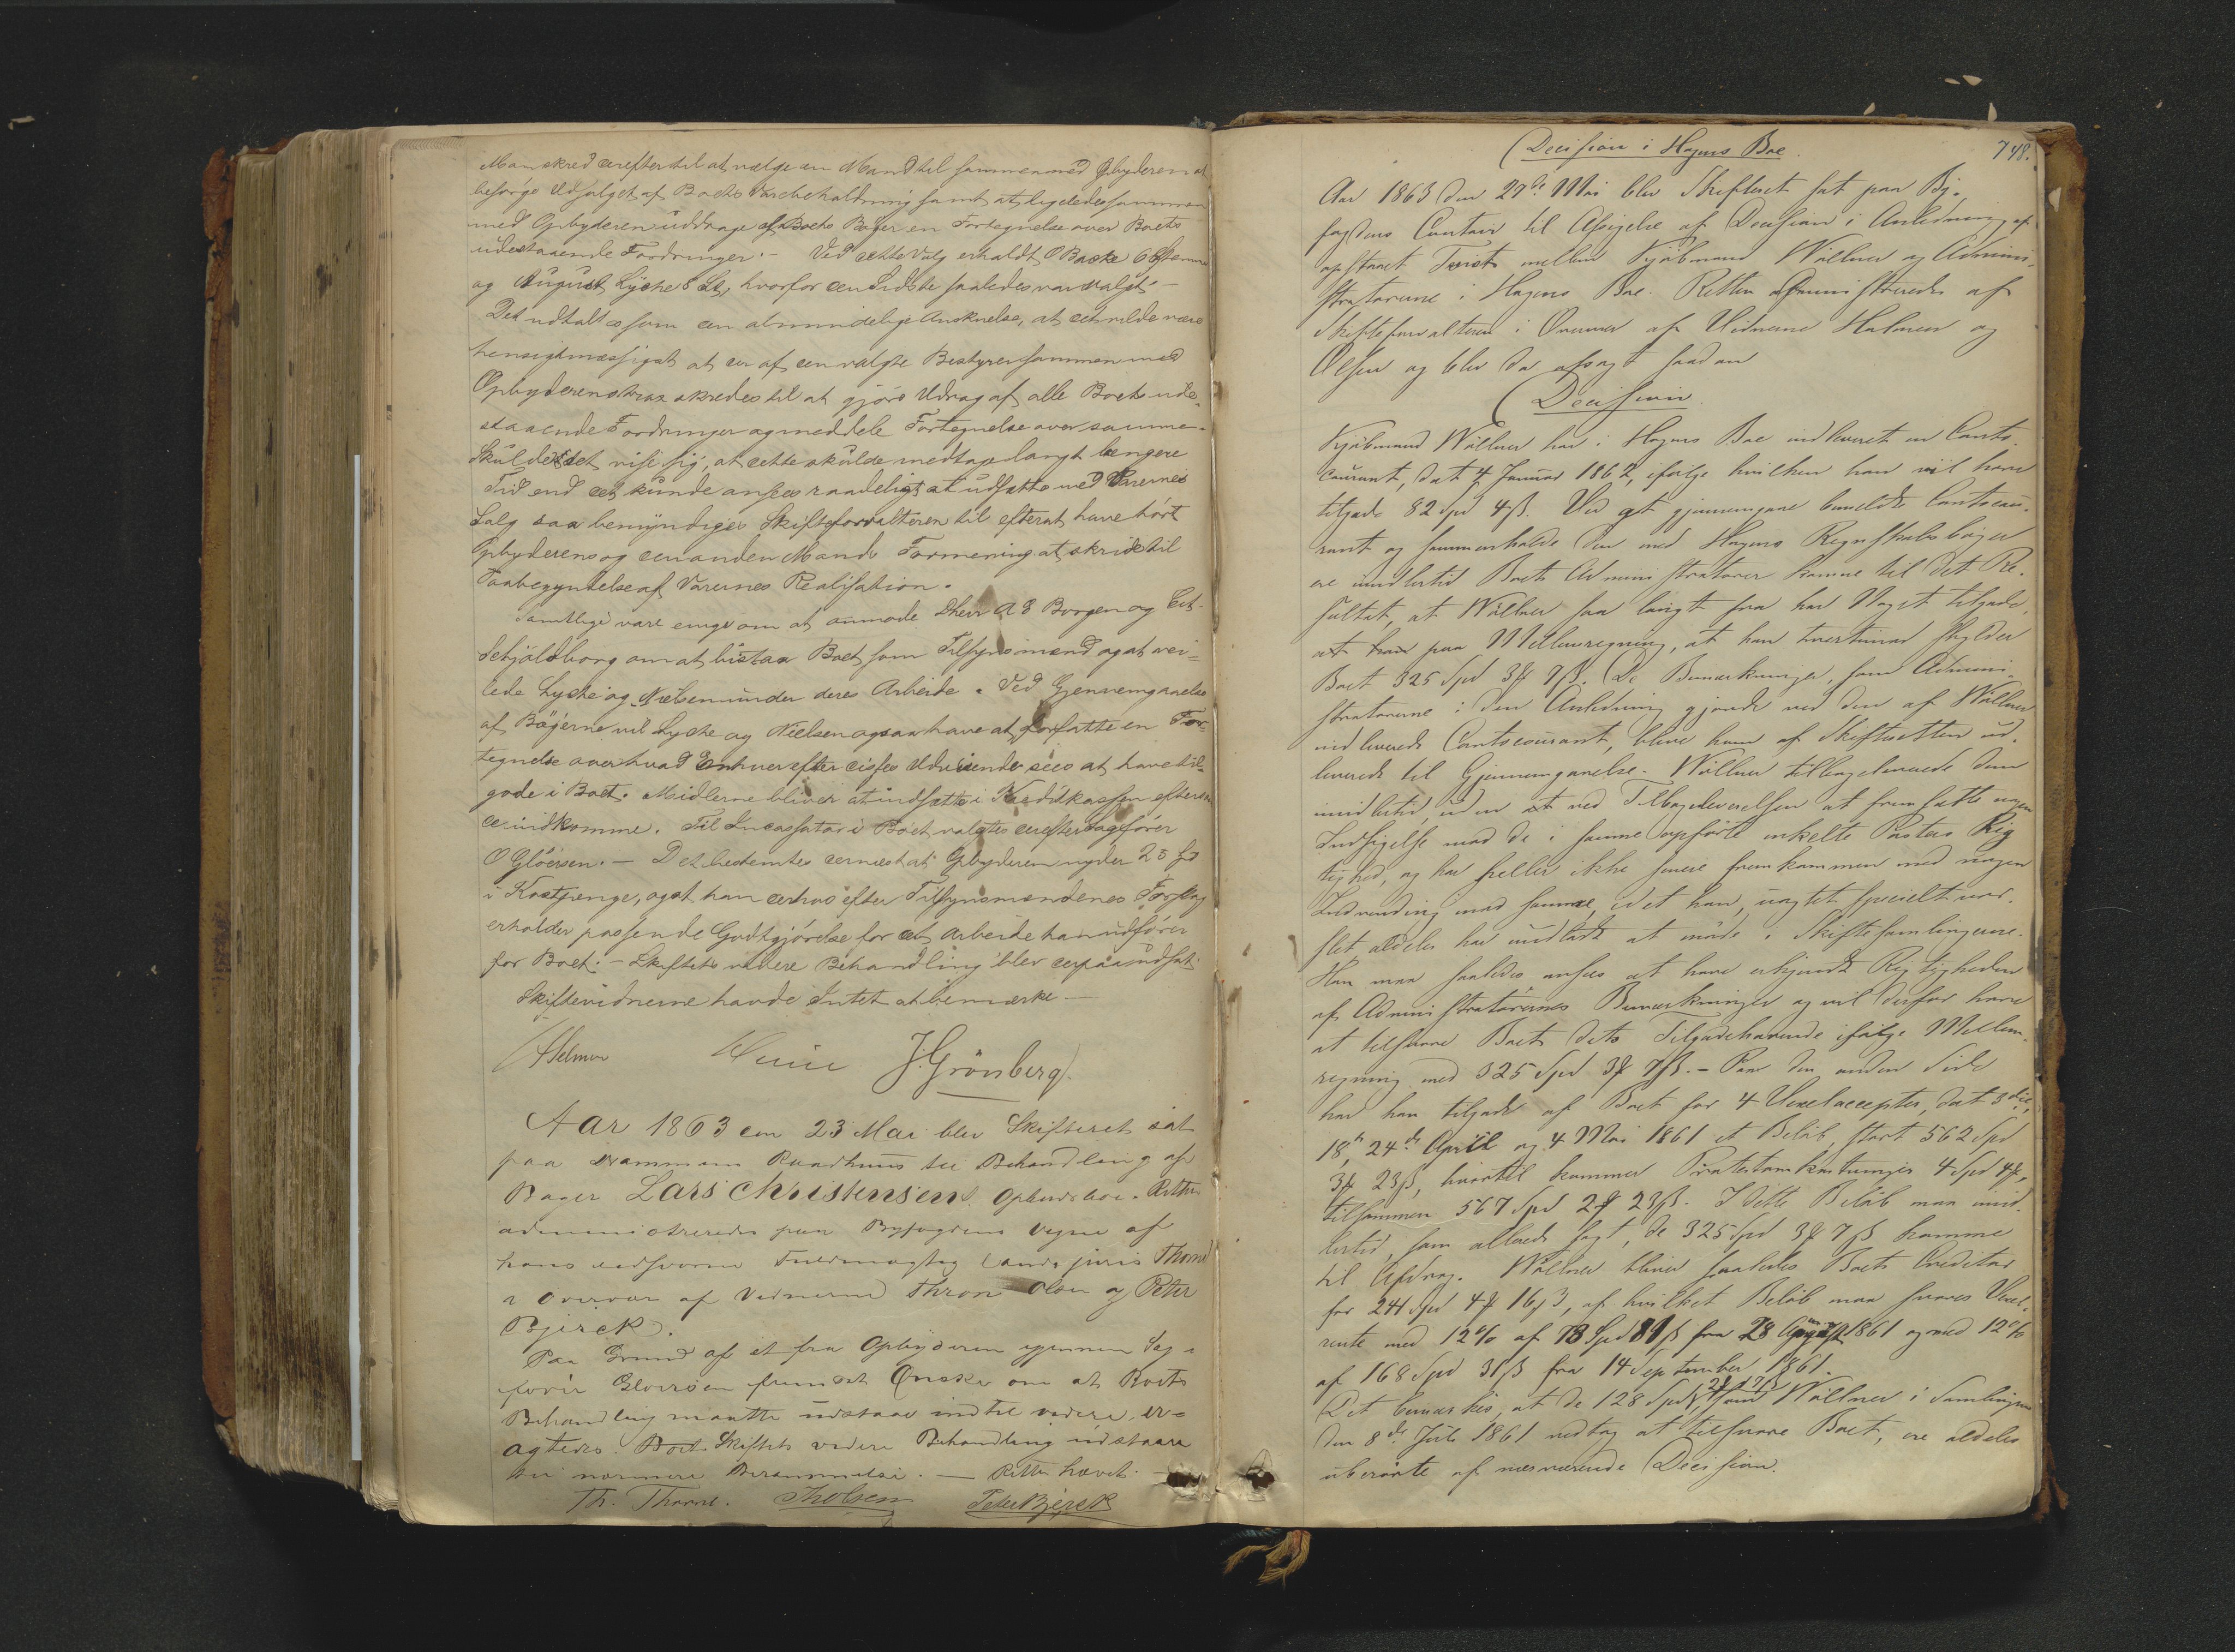 Man skred derefter til at vælge en Mand til sammen med Opbyderen at
besørge Udsalget af Boets Varebeholdning samt at ligeledes sammen
med Opbyderen uddrage af Boets Bøger en Fortegnelse over Boets
udestaaende Fordringer. – Ved dette Valg erholdt O Baste 6 Stemmer
og August Lyche 8 St, hvorfor den Sidste saaledes var valgt. –
Det udtaltes som en almindelige Anskuelse, at det vilde være
hensigtmæssigst at der af den valgte Bestyrer sammen med
Opbyderen strax skredes til at gjøre Udrag af alle Boets ude-
staaende Fordringer og meddele Fortegnelse over samme.
Skulde det vise sig, at dette skulde medtage langt længere
Tid end det kunde ansees raadeligst at udsætte med Varernes
Salg saa bemyndiges Skifteforvalteren til efterat have hørt
Opbyderens og den anden Mands Formening at skride til
Paabegyndelse af Varernes Realisation.
Samtlige vare enige om at anmode Dherr A E Borgen og
Schjøldborg om at bistaa Boet som Tilsynsmænd og at vei-
lede Lyche og Nielsen under deres Arbeide. Ved Gjennemgaaelse
af Bøgerne vil Lyche og Nielsen ogsaa have at forfatte en For-
tegnelse over hvad Enhver efter disses Udvisende sees at have til-
gode i Boet. Midlerne bliver at indsætte i Kreditkassen efterson
de indkomme. Til Incassator i Boet valgtes derefter Sagfører
O Gløersen. – Det bestemtes dernæst at Opbyderen nyder 25 ß
i Kostpenge, og at han derhos efter Tilsynsmændenes Forslag
erholder passende Godtgjørelse for det Arbeide han udfører
for Boet. – Skiftets videre Behandling blev derpaa udsat.
Skiftevidnerne havde Intet at bemærke –
J. Grönberg.
Aar 1863 den 23 Mai blev Skifteret sat
paa Drammens Raadhuus til Behandling af
Bager Lars Christensens Opbudsboe. Retten
administreredes paa Byfogdens Vegne af
hans edsvorne Fuldmægtig Cand. juris Thorne
i Overvær af Vidnerne Thron Olsen og Peter
Bjerck.
Paa Grund af et fra Opbyderen gjennem Sag-
fører Gløersen fremsat Ønske om at Boets
Behandling maatte udstaae indtil videre, er-
agtedes Boet Skiftets videre Behandling udstaae
til nærmere Berammelse. – Retten hævet. –
Th. Thorne. Th Olsen Peter Bjerck
Decision i Hagens Boe. 748.
Aar 1863 den 27de Mai blev Skifteret sat paa By-
fogdens Contoir til Afsigelse af Decision i Anledning af
opstaaet Tvist mellem Kjøbmand Wöllner og Admini-
stratorerne i Hagens Boe. Retten administreredes af
Skifteforvalteren i Overvær af Vidnerne Halmer og
Olsen og blev da afsagt saadan
Decision.
Kjøbmand Wöllner har i Hagens Boe indleveret en Conto-
courant, dat 4 Januar 1862, ifølge hvilken han vil have
tilgode 82 Spd 4 ß. Ved at gjennemgaae bemeldte Contocou-
rant og sammenholde den med Hagens Regnskabsbøger
ere imidlertid Boets Administratorer komne til det Re-
sultat, at Wöllner saa langt fra har Noget tilgode
paa Mellemregning, at han tvertimod skylder
Boet 325 Spd 3 ₰ 7 ß. De Bemærkninger, som Admini-
stratorerne i den Anledning gjorde ved den af Wöllner
indleverede Contocourant, bleve ham af Skifteretten ud-
leverede til Gjennemgaaelse. Wöllner tilbageleverede dem
imidlertid, uden at ved Tilbageleverelsen at fremsætte nogen
Indsigelse mod de i samme opførte enkelte Posters Rig-
tighed, og har heller ikke senere fremkommen med nogen
Indvending mod samme, idet han, uagtet specielt var-
slet aldeles har undladt at møde i Skiftesamlingerne.
Han maa saaledes ansees at have erkjendt Rigtigheden
af Administratorernes Bemærkninger og vil derfor have
at tilsvare Boet dets Tilgodehavende ifølge Mellem-
regning med 325 Spd 3 ₰ 7 ß. – Paa den anden Side
har han tilgode af Boet for 4 Vexelaccepter, dat 3die,
18de, 24de April og 4 Mai 1861 et Beløb, stort 562 Spd
3 ₰ 23 ß, hvortil kommer Protestomkostninger 4 Spd 4 ₰,
tilsammen 567 Spd 2 ₰ 23 ß. I dette Beløb maa imid-
lertid, som allerede sagt, de 325 Spd 3 ₰ 7 ß komme
til Afdrag. Wöllner bliver saaledes Boets Creditor
for 241 Spd 4 ₰ 16 ß, af hvilket Beløb maa svares Vexel-
rente med 12 % af 73 Spd 81 ß fra 28 August 1861 og med 12 %
af 168 Spd 31 ß fra 14 September 1861.
Det bemærkes, at de 128 Spd 2 ₰ 17 ß, som Wöllner i Samlingen
den 8de Juli 1861 vedtog at tilsvare Boet, ere aldeles
uberørte af nærværende Decision.